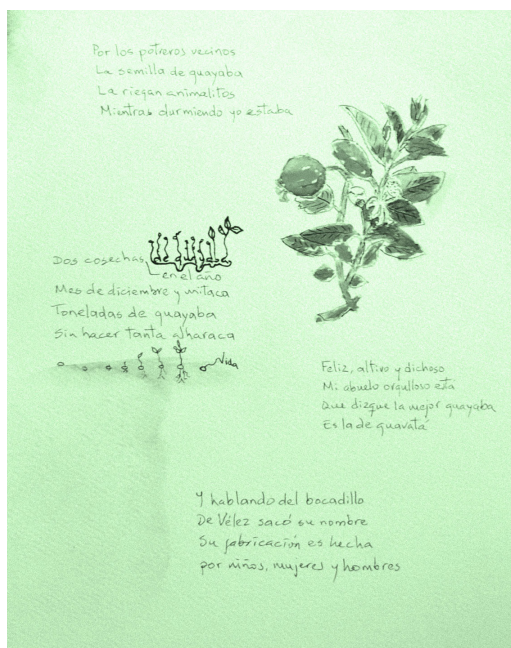 Por los potreros vecinos
La semilla de guayaba
La riegan animalitos
Mientras durmiendo yo estaba
Dos cosechas
en el año
Mes de diciembre y mitaca
Toneladas de guayaba
Sin hacer tanta alharaca
Vida
Feliz, altivo y dichoso
Mi abuelo orgulloso está
Que dizque la mejor guayaba
Es la de guavatá
Y hablando del bocadillo
De Vélez sacó su nombre
Su fabricación es hecha
por niños, mujeres y hombres